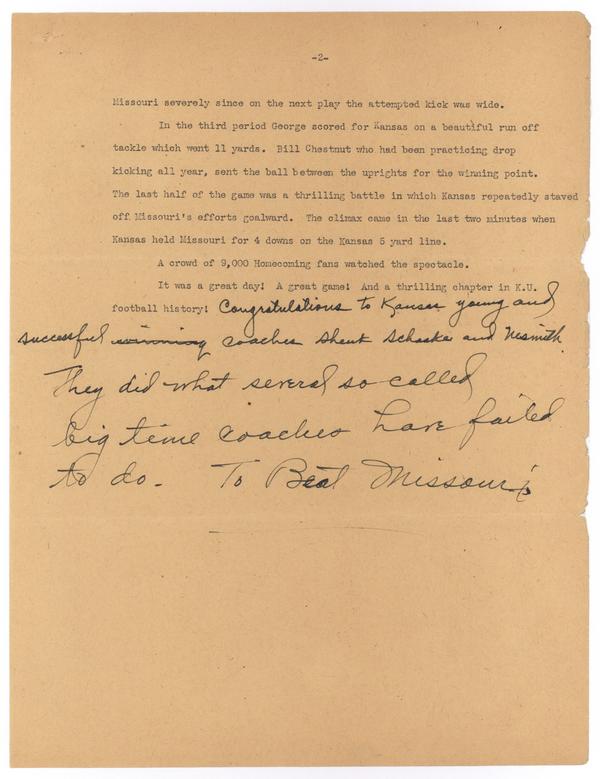 -2-
Missouri severely since on the next play the attempted kick was wide.
In the third period George scored for Kansas on a beautiful run off
tackle which went 11 yards. Bill Chestnut who had been practicing drop
kicking all year, sent the ball between the uprights for the winning point.
The last half of the game was a thrilling battle in which Kansas repeatedly staved
off Missouri's efforts goalward. The climax came in the last two minutes when
Kansas held Missouri for 4 downs on the Kansas 5 yard line.
A crowd of 9,000 Homecoming fans watched the spectacle.
It was a great day! A great game! And a thrilling chapter in K.U.
football history! Congratulations to Kansas young and
successful winning coaches Shenk Schaake and Nesmith.
They did what several so called
big time coaches have failed
to do. To Beat Missouri